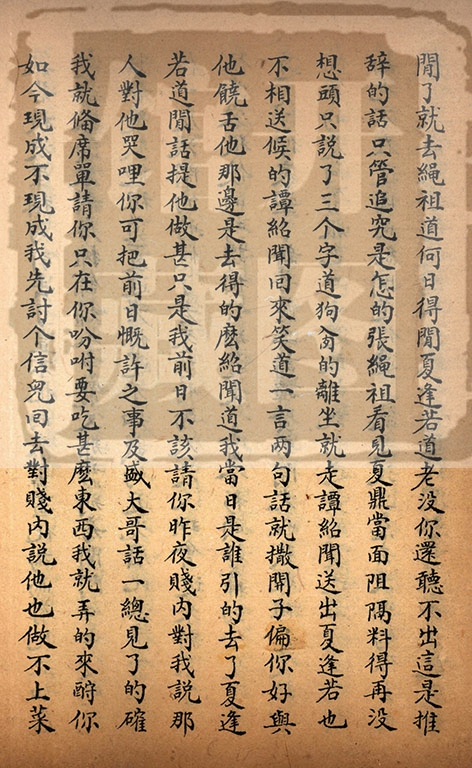 閒了就去繩祖道何日得閒夏逢若道老没你還聽不出這是推
辞的話只管追究是怎的張繩祖看見夏鼎當面阻隔料得再没
想頭只説了三个字道狗肏的離坐就走譚紹聞送出夏逢若也
不相送候的譚紹聞回來笑道一言两句話就撒開子偏你好與
他饒舌他那邊是去得的麽紹聞道我當日是誰引的去了夏逢
若道閒話提他做甚只是我前日不該請你昨夜賤内對我説那
人對他哭哩你可把前日慨許之事及盛大哥話一總見了的確
我就俻席單請你只在你吩咐要吃甚麽東西我就弄的來酧你
如今現成不現成我先討个信兒回去對賤内説他也做不上菜